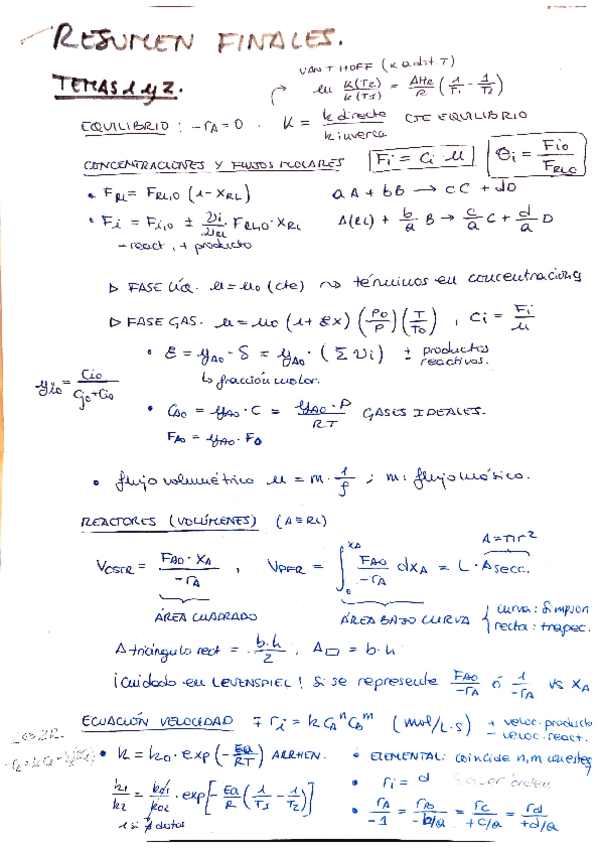 RESUMEN FINALES.
VAN'T HOFF (K a dist. T)
TEMAS 1 y 2.
ln K(T2)/K(T1) = ΔHR/R (1/T1 - 1/T2)
EQUILIBRIO: -rA=0. K = k directa/k inversa CTE EQUILIBRIO
CONCENTRACIONES Y FLUJOS MOLARES Fi = Ci · u θi = Fio/FRLO
• FRL = FRL,0 (1 - XRL) aA + bB → cC + dD
• Fi = Fi,0 ± νi/νRL FRL,0 · XRL A(RL) + b/a B → c/a C + d/a D
- react, + producto
▷ FASE LÍQ. u = u0 (cte) → términos en concentraciones
▷ FASE GAS. u = u0 (1 + εX) (P0/P) (T/T0), Ci = Fi/u
• ε = yA0 · δ = yA0 · (Σ νi) ± productos
reactivos.
↳ fracción molar.
yi0 = Ci0/Cj0+Ci0
• CA0 = yA0 · C = yA0 · P/RT GASES IDEALES.
FA0 = yA0 · F0
• flujo volumétrico u = m · 1/ρ ; m: flujo másico.
REACTORES (VOLÚMENES) (A ≡ RL)
A = πr²
VCSTR = FA0 · XA/-rA , VPFR = ∫0^XA FA0/-rA dXA = L · A secc.
ÁREA CUADRADO ÁREA BAJO CURVA { curva: Simpson
recta: trapec.
A triángulo rect = b·h/2 , A□ = b·h
¡Cuidado en LEVENSPIEL! Si se represente FA0/-rA ó 1/-rA vs XA
ECUACIÓN VELOCIDAD ∓ ri = k CA^n CB^m (mol/L·s) + veloc. producto
- veloc. react.
• k = k0 · exp(-Ea/RT) ARRHEN. • ELEMENTAL: coincide n,m con esteq
k1/k2 = k01/k02 · exp[-Ea/R (1/T1 - 1/T2)] • ri = d
1 si datos
• rA/-1 = rB/-b/a = rC/+c/a = rd/+d/a